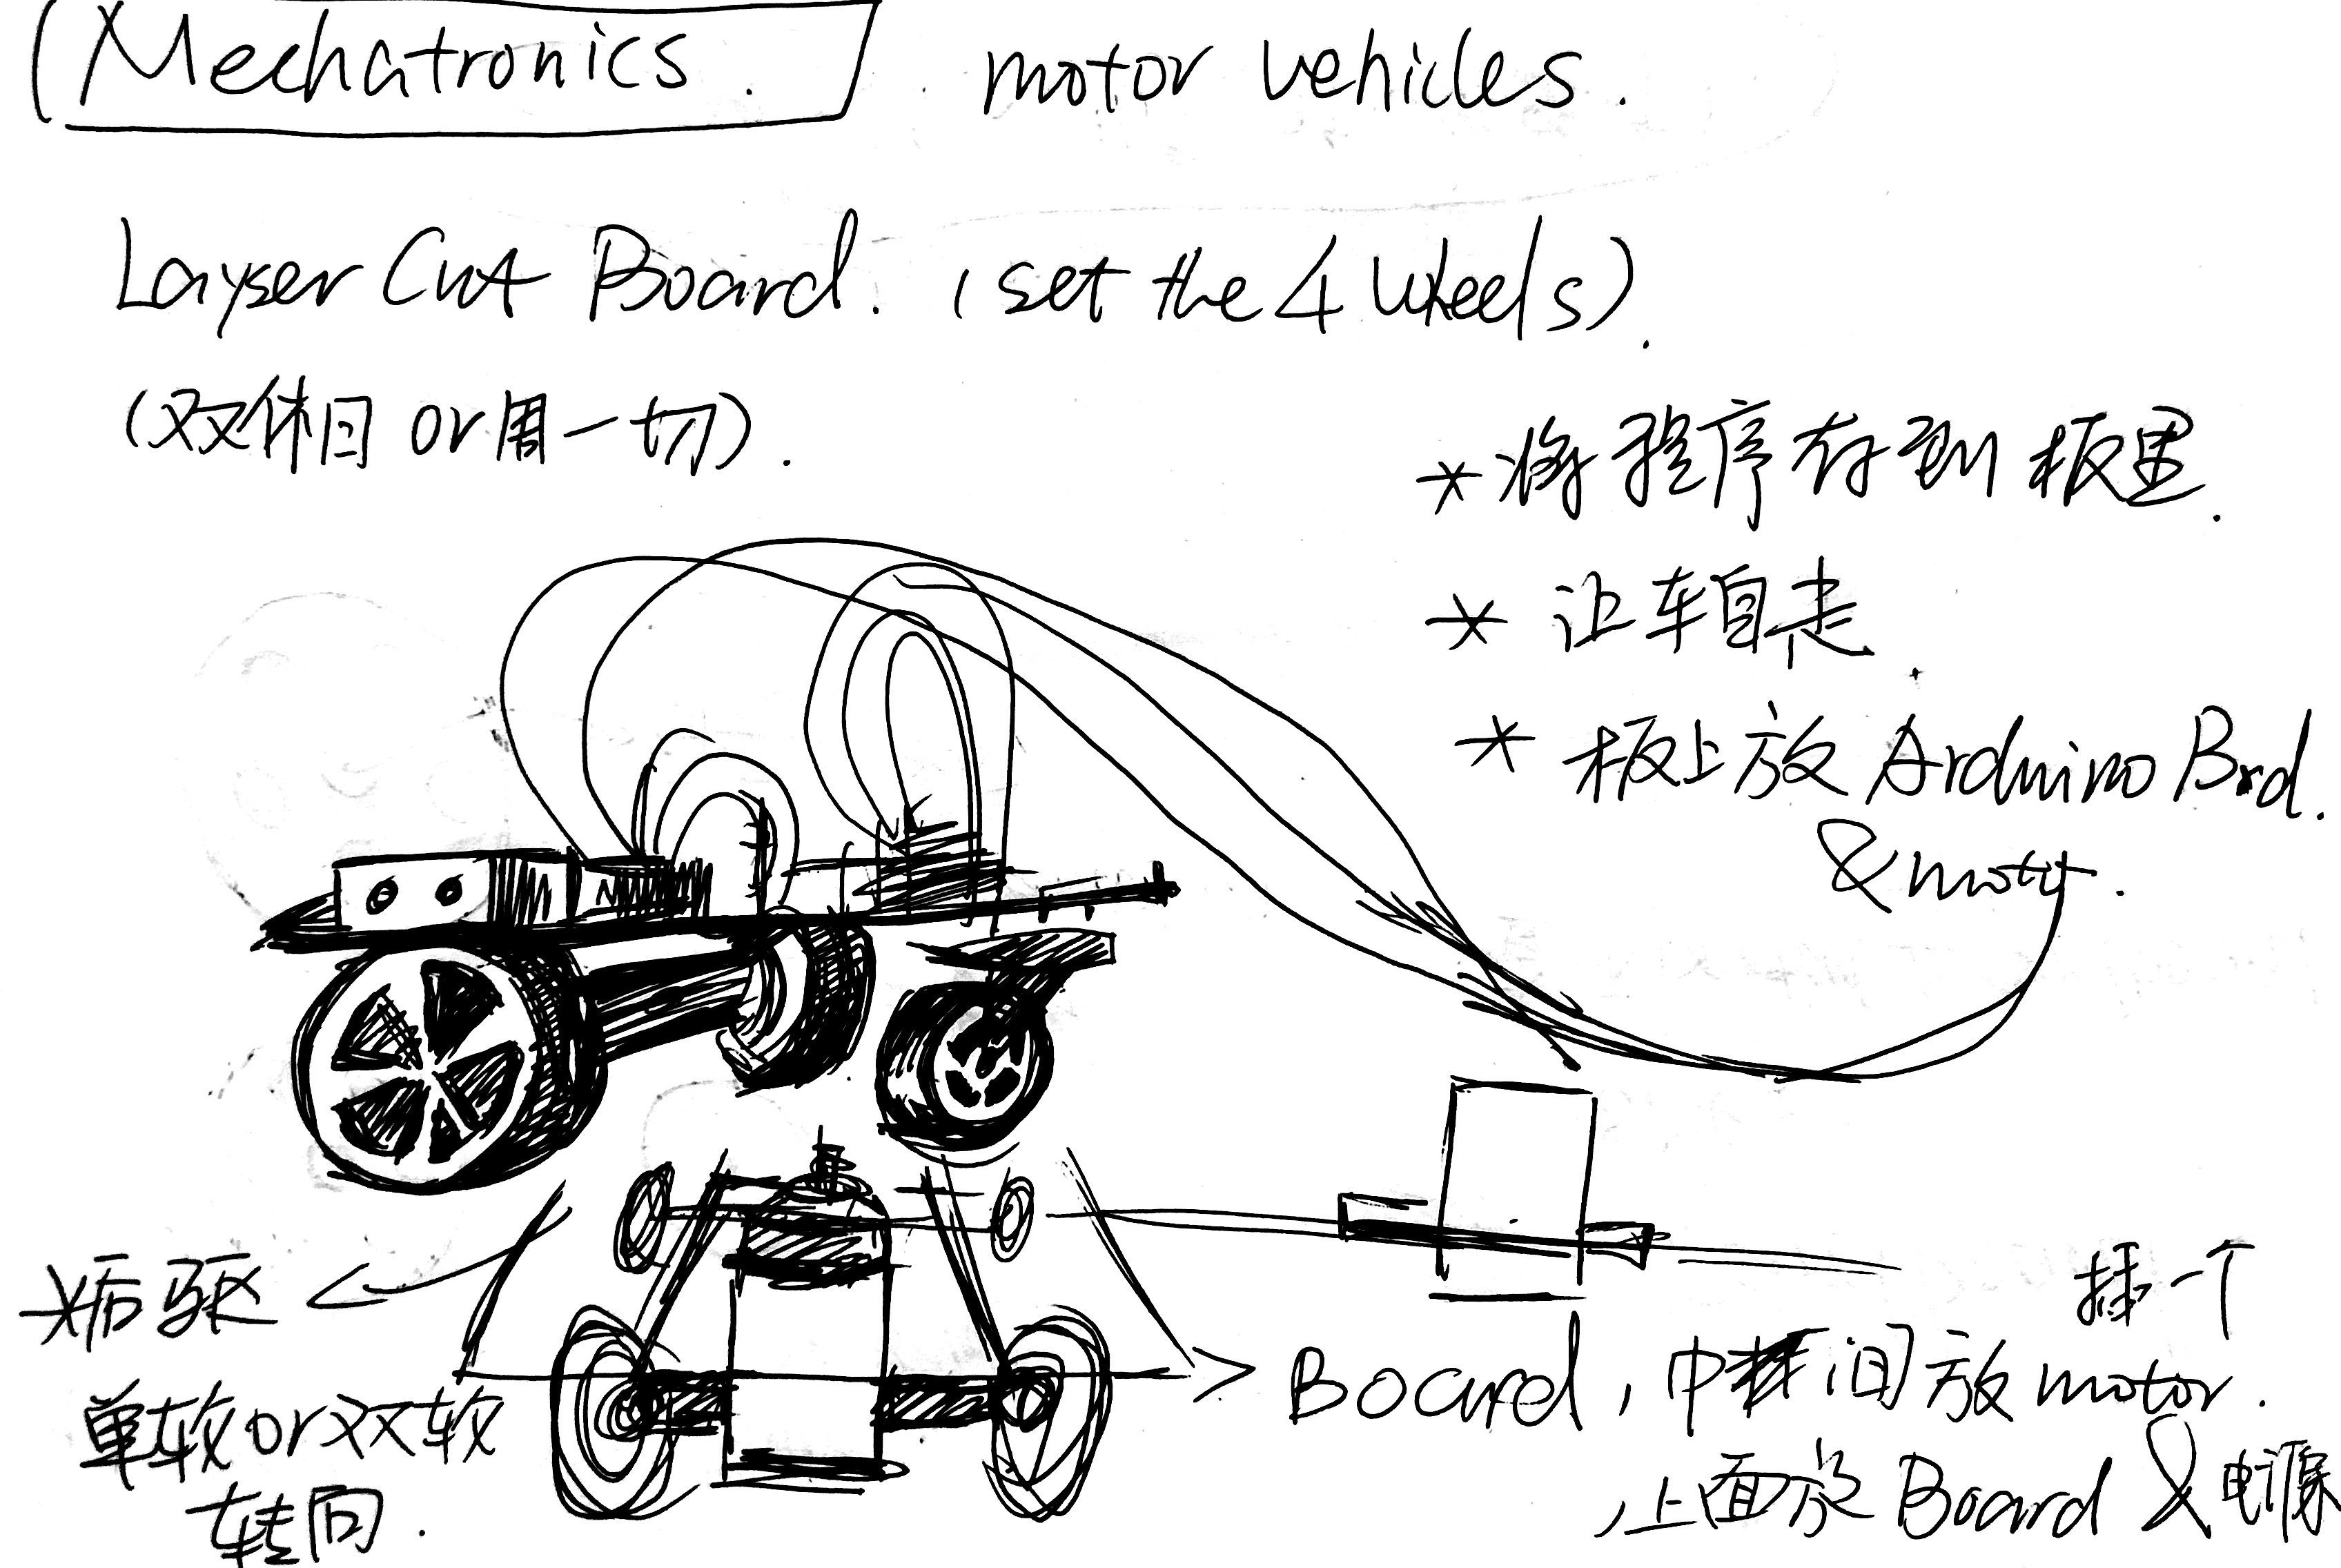 Mechatronics. motor vehicles.
Layser Cut Board. (set the 4 wheels).
(双休日 or 周一切).
* 将程序存到板里.
* 让车自走.
* 板上放 Arduino Brd.
& motor.
*后驱
单软 or 双软
转向.
插个
Board, 中间放 motor.
,上面放 Board & 电源